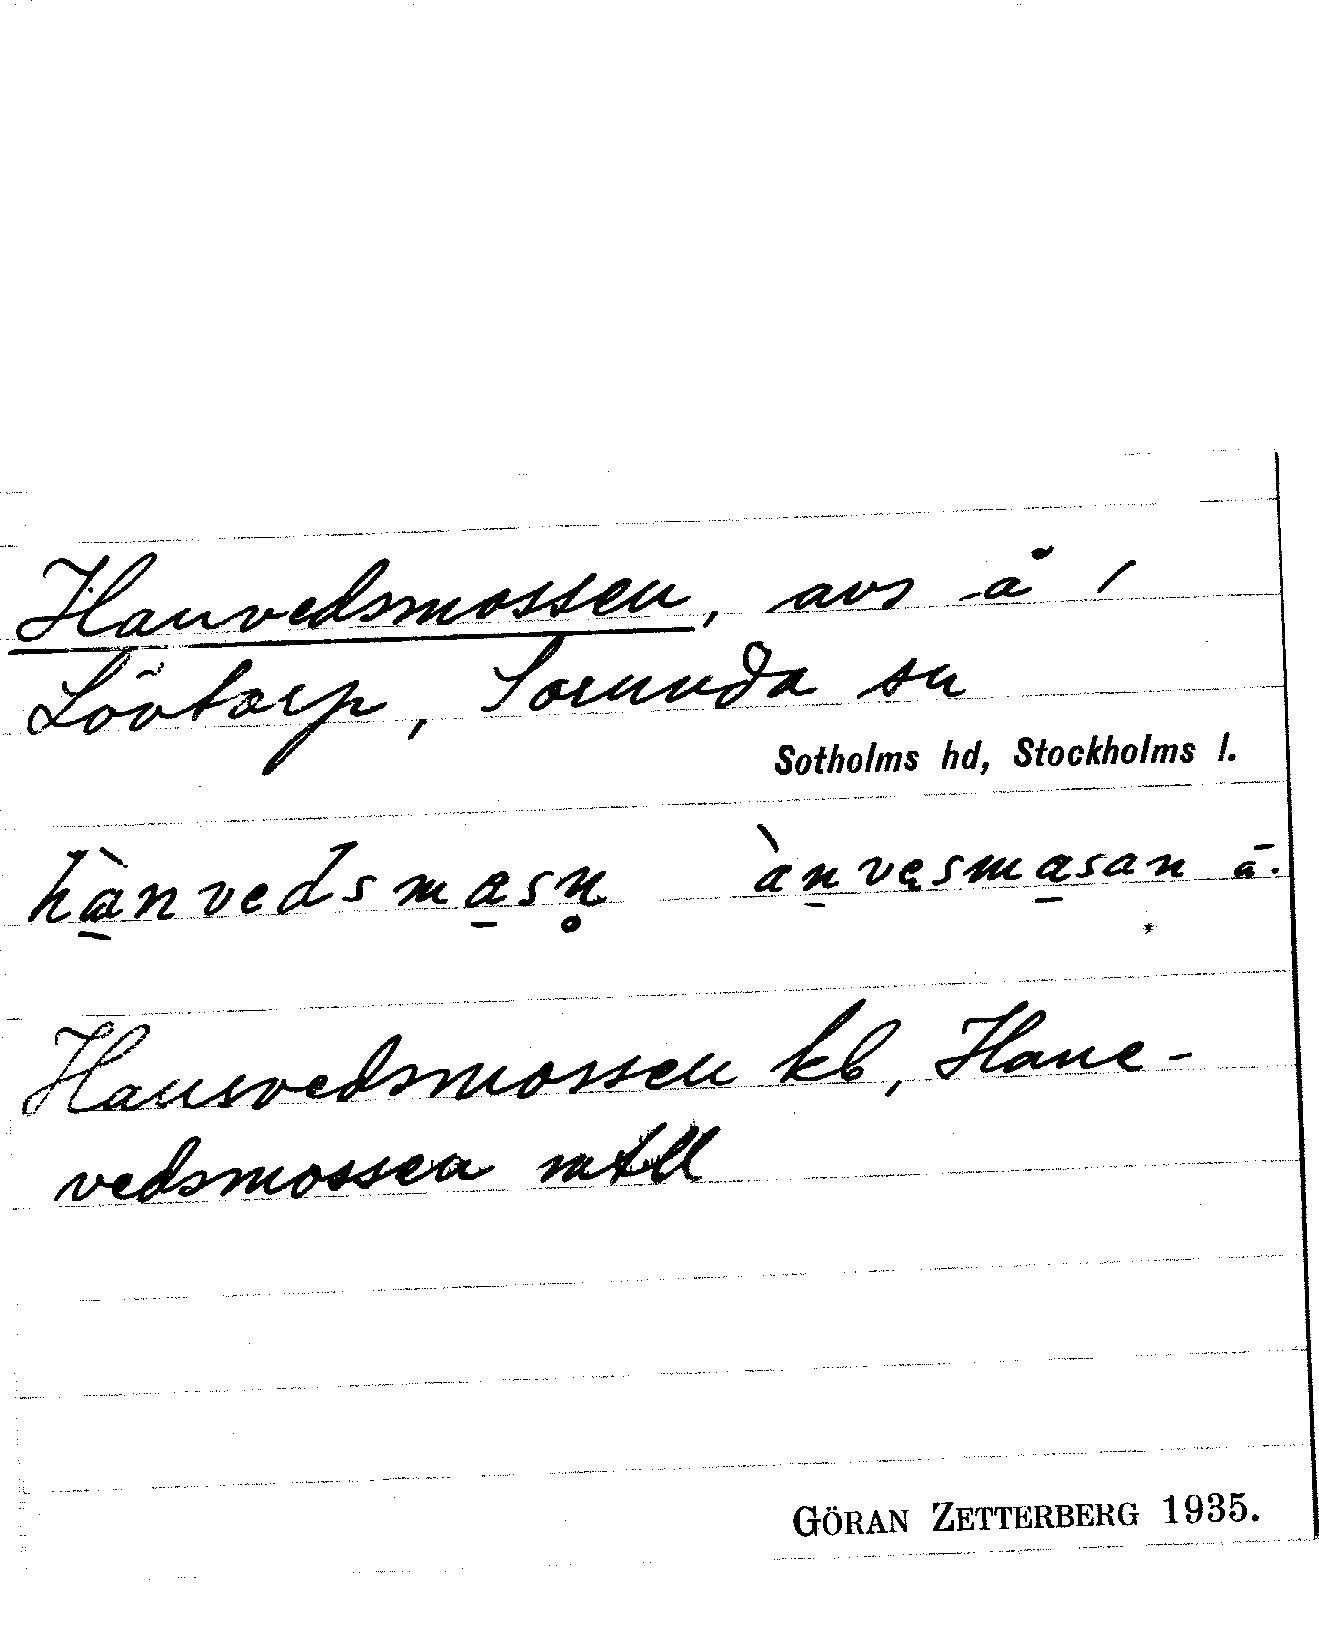 Hanvedsmossen, avs -å i
Lövtorp, Sorunda sn
Sotholms hd, Stockholms l.
hànvedsmasn̥ ànvesmasan ä.
Hansvedsmossen kb, Hane-
vedsmossen mtll
GÖRAN ZETTERBERG 1935.